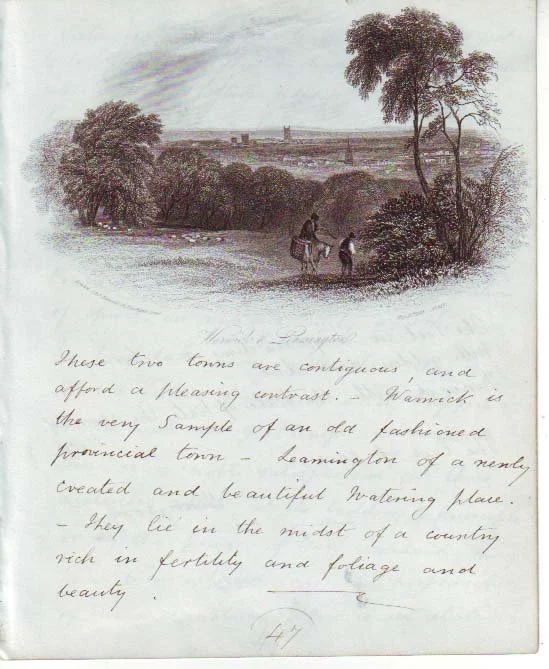 Warwick & Leamington.
These two towns are contiguous, and
afford a pleasing contrast. - Warwick is
the very Sample of an old fashioned
provincial town - Leamington of a newly
created and beautiful Watering place.
- They lie in the midst of a country
rich in fertility and foliage and
beauty.
47